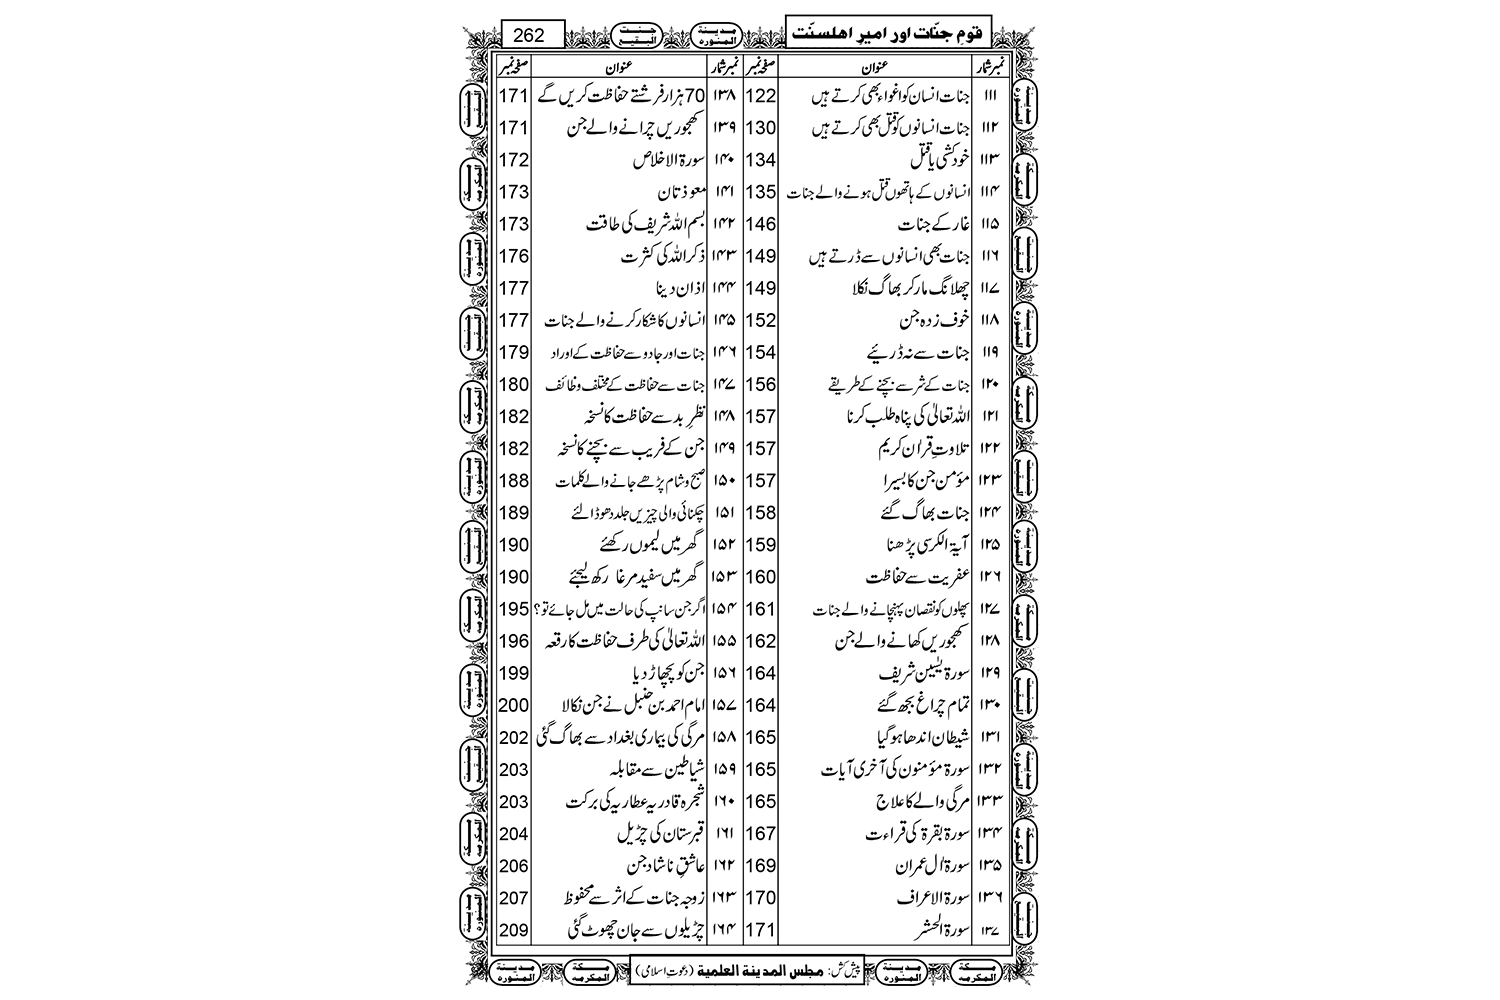 قومِ جنّات اور امیرِ اہلسنّت
262
نمبر شمار عنوان صفحہ نمبر نمبر شمار عنوان صفحہ نمبر
۱۱۱ جنات انسان کو اغواء بھی کرتے ہیں 122 ۱۳۸ 70 ہزار فرشتے حفاظت کریں گے 171
۱۱۲ جنات انسانوں کو قتل بھی کرتے ہیں 130 ۱۳۹ کھجوریں چرانے والے جن 171
۱۱۳ خودکشی یا قتل 134 ۱۴۰ سورۃ الاخلاص 172
۱۱۴ انسانوں کے ہاتھوں قتل ہونے والے جنات 135 ۱۴۱ معوذتان 173
۱۱۵ غار کے جنات 146 ۱۴۲ بسم اللہ شریف کی طاقت 173
۱۱۶ جنات بھی انسانوں سے ڈرتے ہیں 149 ۱۴۳ ذکر اللہ کی کثرت 176
۱۱۷ چھلانگ مار کر بھاگ نکلا 149 ۱۴۴ اذان دینا 177
۱۱۸ خوف زدہ جن 152 ۱۴۵ انسانوں کا شکار کرنے والے جنات 177
۱۱۹ جنات سے نہ ڈریئے 154 ۱۴۶ جنات اور جادو سے حفاظت کے اوراد 179
۱۲۰ جنات کے شر سے بچنے کے طریقے 156 ۱۴۷ جنات سے حفاظت کے مختلف وظائف 180
۱۲۱ اللہ تعالیٰ کی پناہ طلب کرنا 157 ۱۴۸ نظرِ بد سے حفاظت کا نسخہ 182
۱۲۲ تلاوتِ قراٰن کریم 157 ۱۴۹ جن کے فریب سے بچنے کا نسخہ 182
۱۲۳ مؤمن جن کا بسیرا 157 ۱۵۰ صبح و شام پڑھے جانے والے کلمات 188
۱۲۴ جنات بھاگ گئے 158 ۱۵۱ چکنائی والی چیزیں جلد دھو ڈالئے 189
۱۲۵ آیۃ الکرسی پڑھنا 159 ۱۵۲ گھر میں لیموں رکھئے 190
۱۲۶ عفریت سے حفاظت 160 ۱۵۳ گھر میں سفید مرغا رکھ لیجئے 190
۱۲۷ پھلوں کو نقصان پہنچانے والے جنات 161 ۱۵۴ اگر جن سانپ کی حالت میں مل جائے تو؟ 195
۱۲۸ کھجوریں کھانے والے جن 162 ۱۵۵ اللہ تعالیٰ کی طرف حفاظت کا رقعہ 196
۱۲۹ سورۃ یٰسین شریف 164 ۱۵۶ جن کو پچھاڑ دیا 199
۱۳۰ تمام چراغ بجھ گئے 164 ۱۵۷ امام احمد بن حنبل نے جن نکالا 200
۱۳۱ شیطان اندھا ہو گیا 165 ۱۵۸ مرگی کی بیماری بغداد سے بھاگ گئی 202
۱۳۲ سورۃ مؤمنون کی آخری آیات 165 ۱۵۹ شیاطین سے مقابلہ 203
۱۳۳ مرگی والے کا علاج 165 ۱۶۰ شجرہ قادریہ عطاریہ کی برکت 203
۱۳۴ سورۃ بقرۃ کی قراءت 167 ۱۶۱ قبرستان کی چڑیل 204
۱۳۵ سورۃ اٰل عمران 169 ۱۶۲ عاشقِ ناشاد جن 206
۱۳۶ سورۃ الاعراف 170 ۱۶۳ زوجہ جنات کے اثر سے محفوظ 207
۱۳۷ سورۃ الحشر 171 ۱۶۴ چڑیلوں سے جان چھوٹ گئی 209
پیش کش: مجلس المدینۃ العلمیۃ (دعوتِ اسلامی)